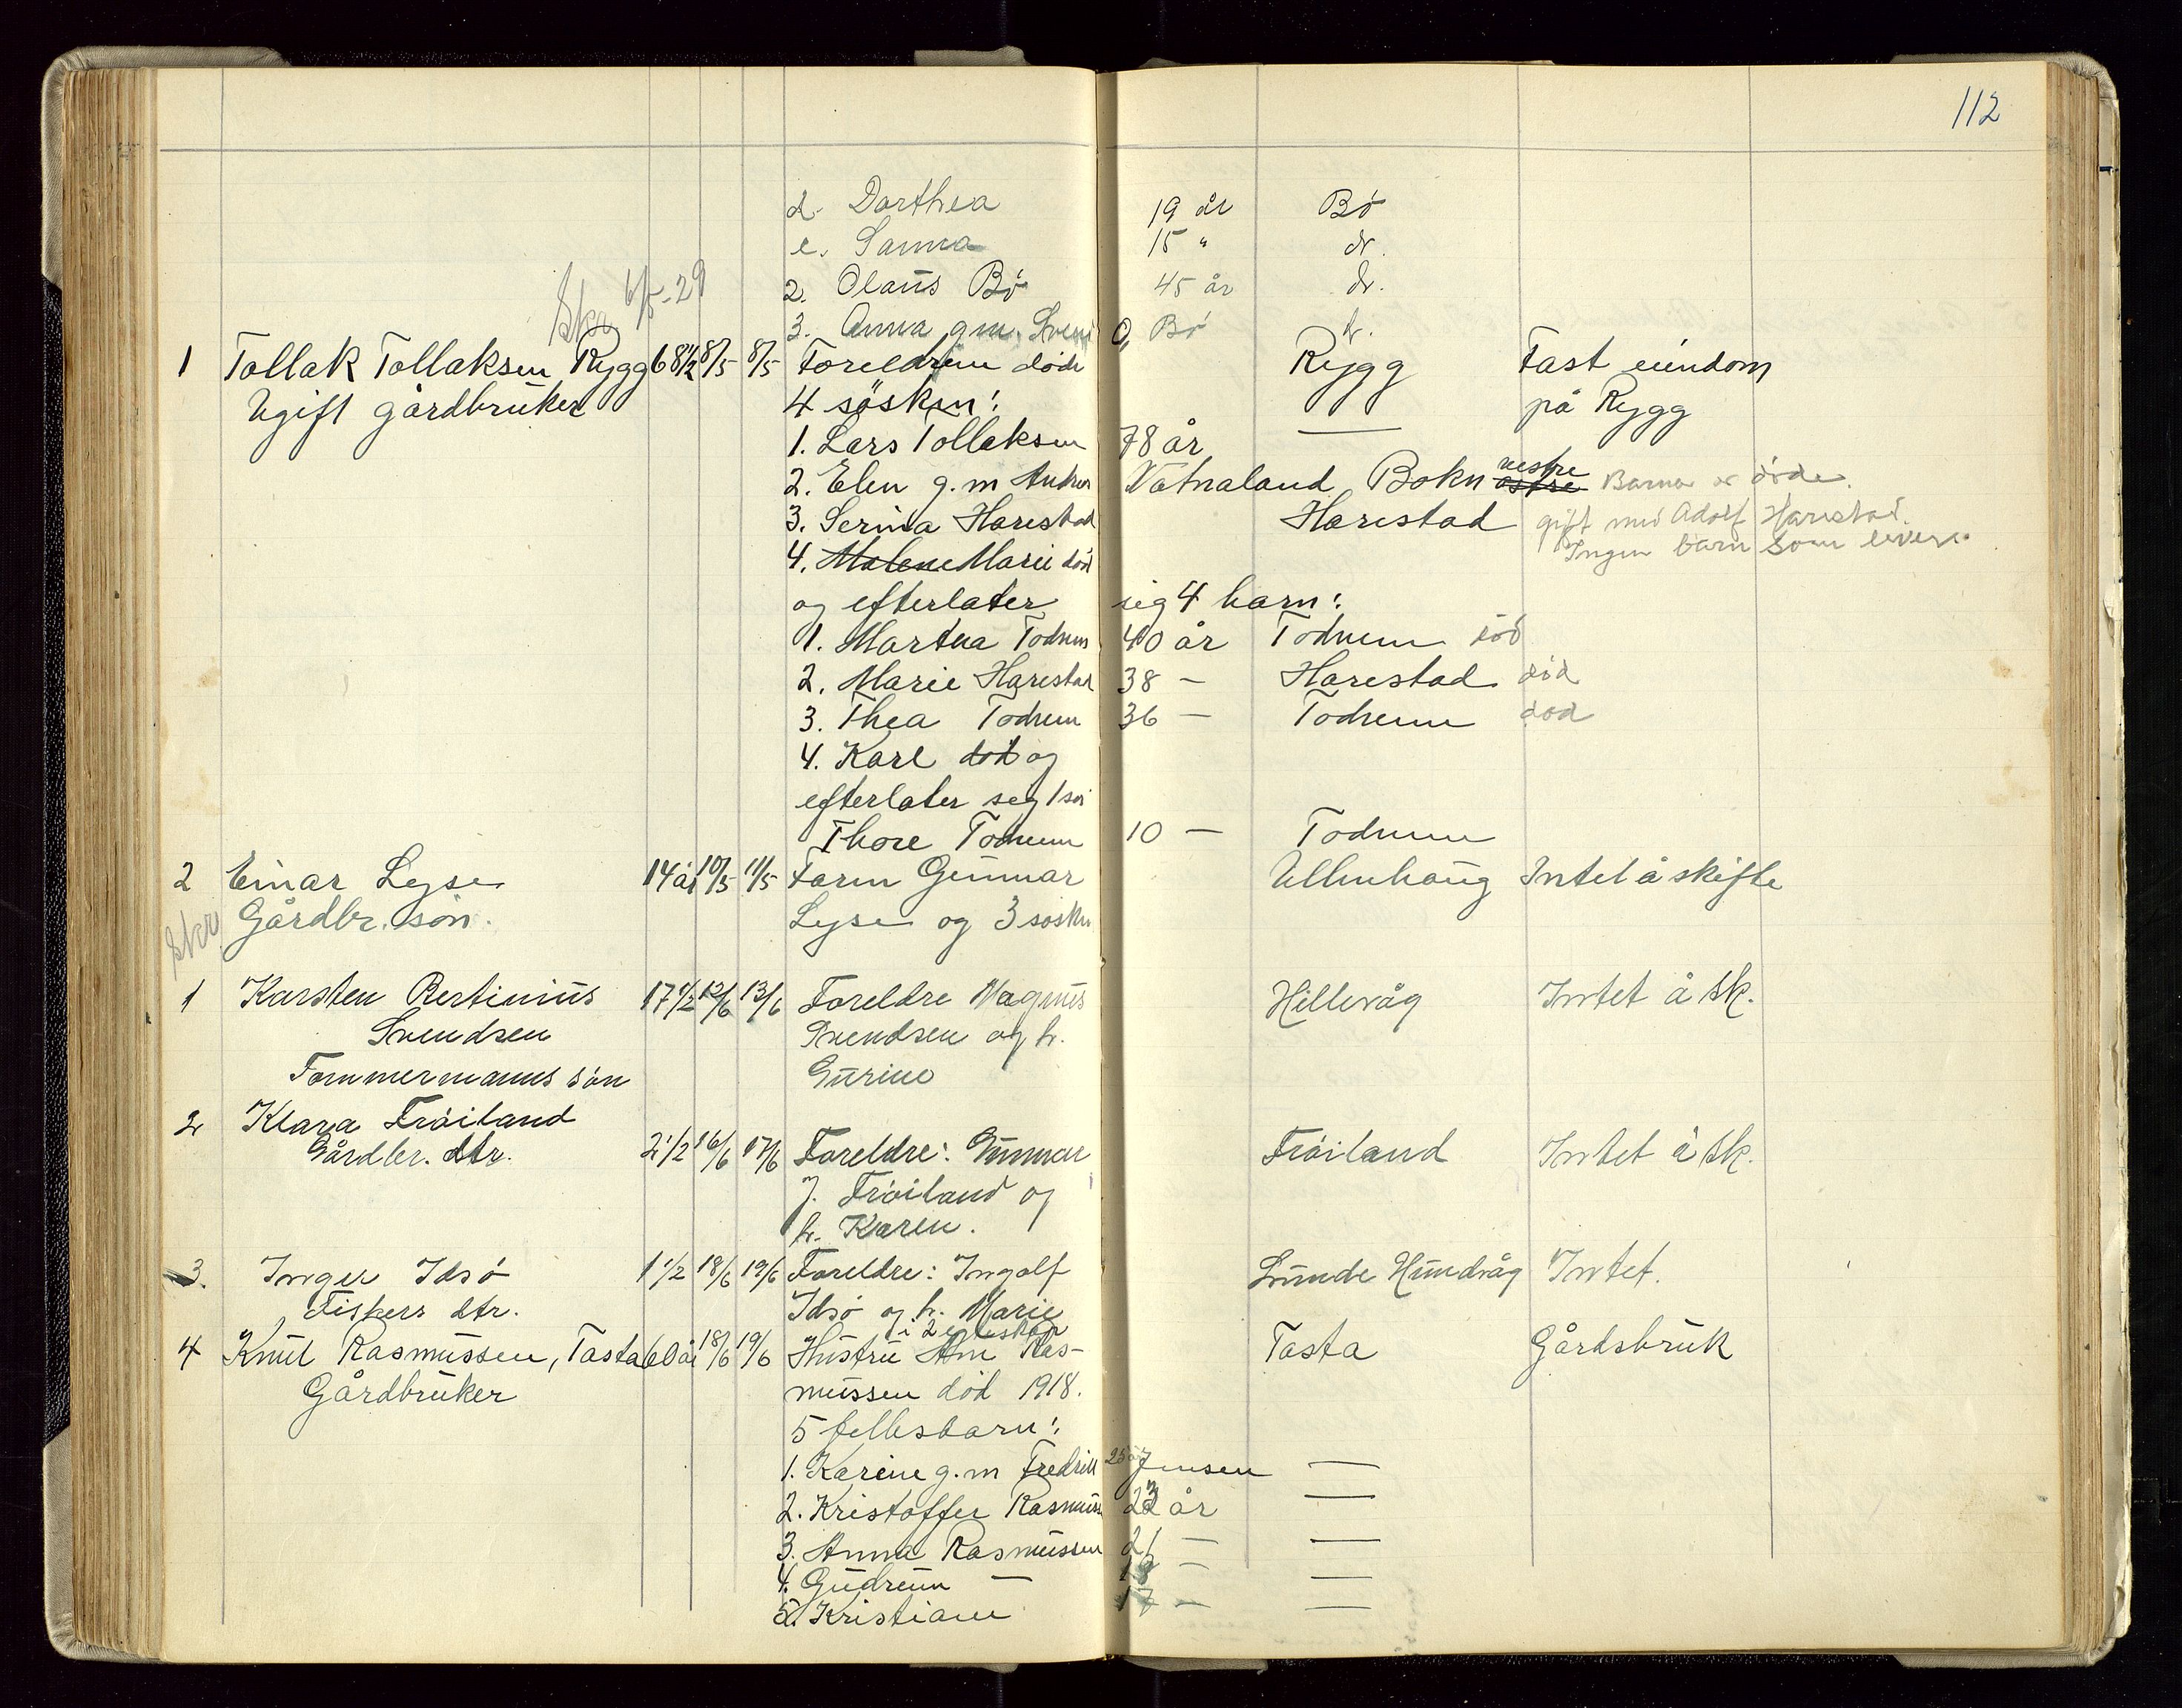 112
d. Dorthea 19 år Bö
e. Sanna 15 " do.
2. Olaus Bö 45 år do.
Skr 6/5-29
3. Anna g.m. Sven O. Bö
1 Tollak Tollaksen Rygg 68 1/2 8/5 8/5 Foreldrene döde Rygg Fast eiendom
Ugift gårdbruker 4 sösken: på Rygg
1. Lars Tollaksen 78 år —
2. Elen g.m Andreas Vatnaland Bokn vestre östre Barna er döde.
3. Serina Harestad Harestad gift med Adolf Harestad.
Ingen barn som lever.
4. Malene Marie död
og efterlater sig 4 barn:
1. Martha Todnem 40 år Todnem död
2. Marie Harestad 38 — Harestad död
3. Thea Todnem 36 — Todnem død
4. Karl död og
efterlater seg 1 sön
Thore Todnem 10 — Todnem
2 Einar Lyse 14 år 10/5 11/5 Faren Gunnar Ullenhaug Intet å skifte
Skr Gårdbr. sön. Lyse og 3 sösken
1 Karsten Bertinius 17 1/2 12/6 13/6 Foreldre Magnus Hillevåg Intet å sk.
Svendsen Svendsen og h.
Tømmermanns sön Gurine
2 Klara Fröiland
Gårdbr. dtr. 2 1/2 16/6 17/6 Foreldre: Gunnar Fröiland Intet å sk.
J. Fröiland og
h. Karen.
3. Inger Idsö 1 1/2 18/6 19/6 Foreldre: Ingolf Lunde Hundvåg Intet.
Fiskers dtr. Idsö og h. Marie
i 2 ekteskap
4 Knut Rasmussen, Tasta 60 år 18/6 19/6 Hustru Ane Ras- Tasta Gårdsbruk
Gårdbruker mussen död 1918.
5 fellesbarn:
1. Karine g.m Fredrik 25 år Jensen —
2. Kristoffer Rasmussen 23 år —
3. Anna Rasmussen 21 — —
4. Gudrun — —
5. Kristiane 17 — —